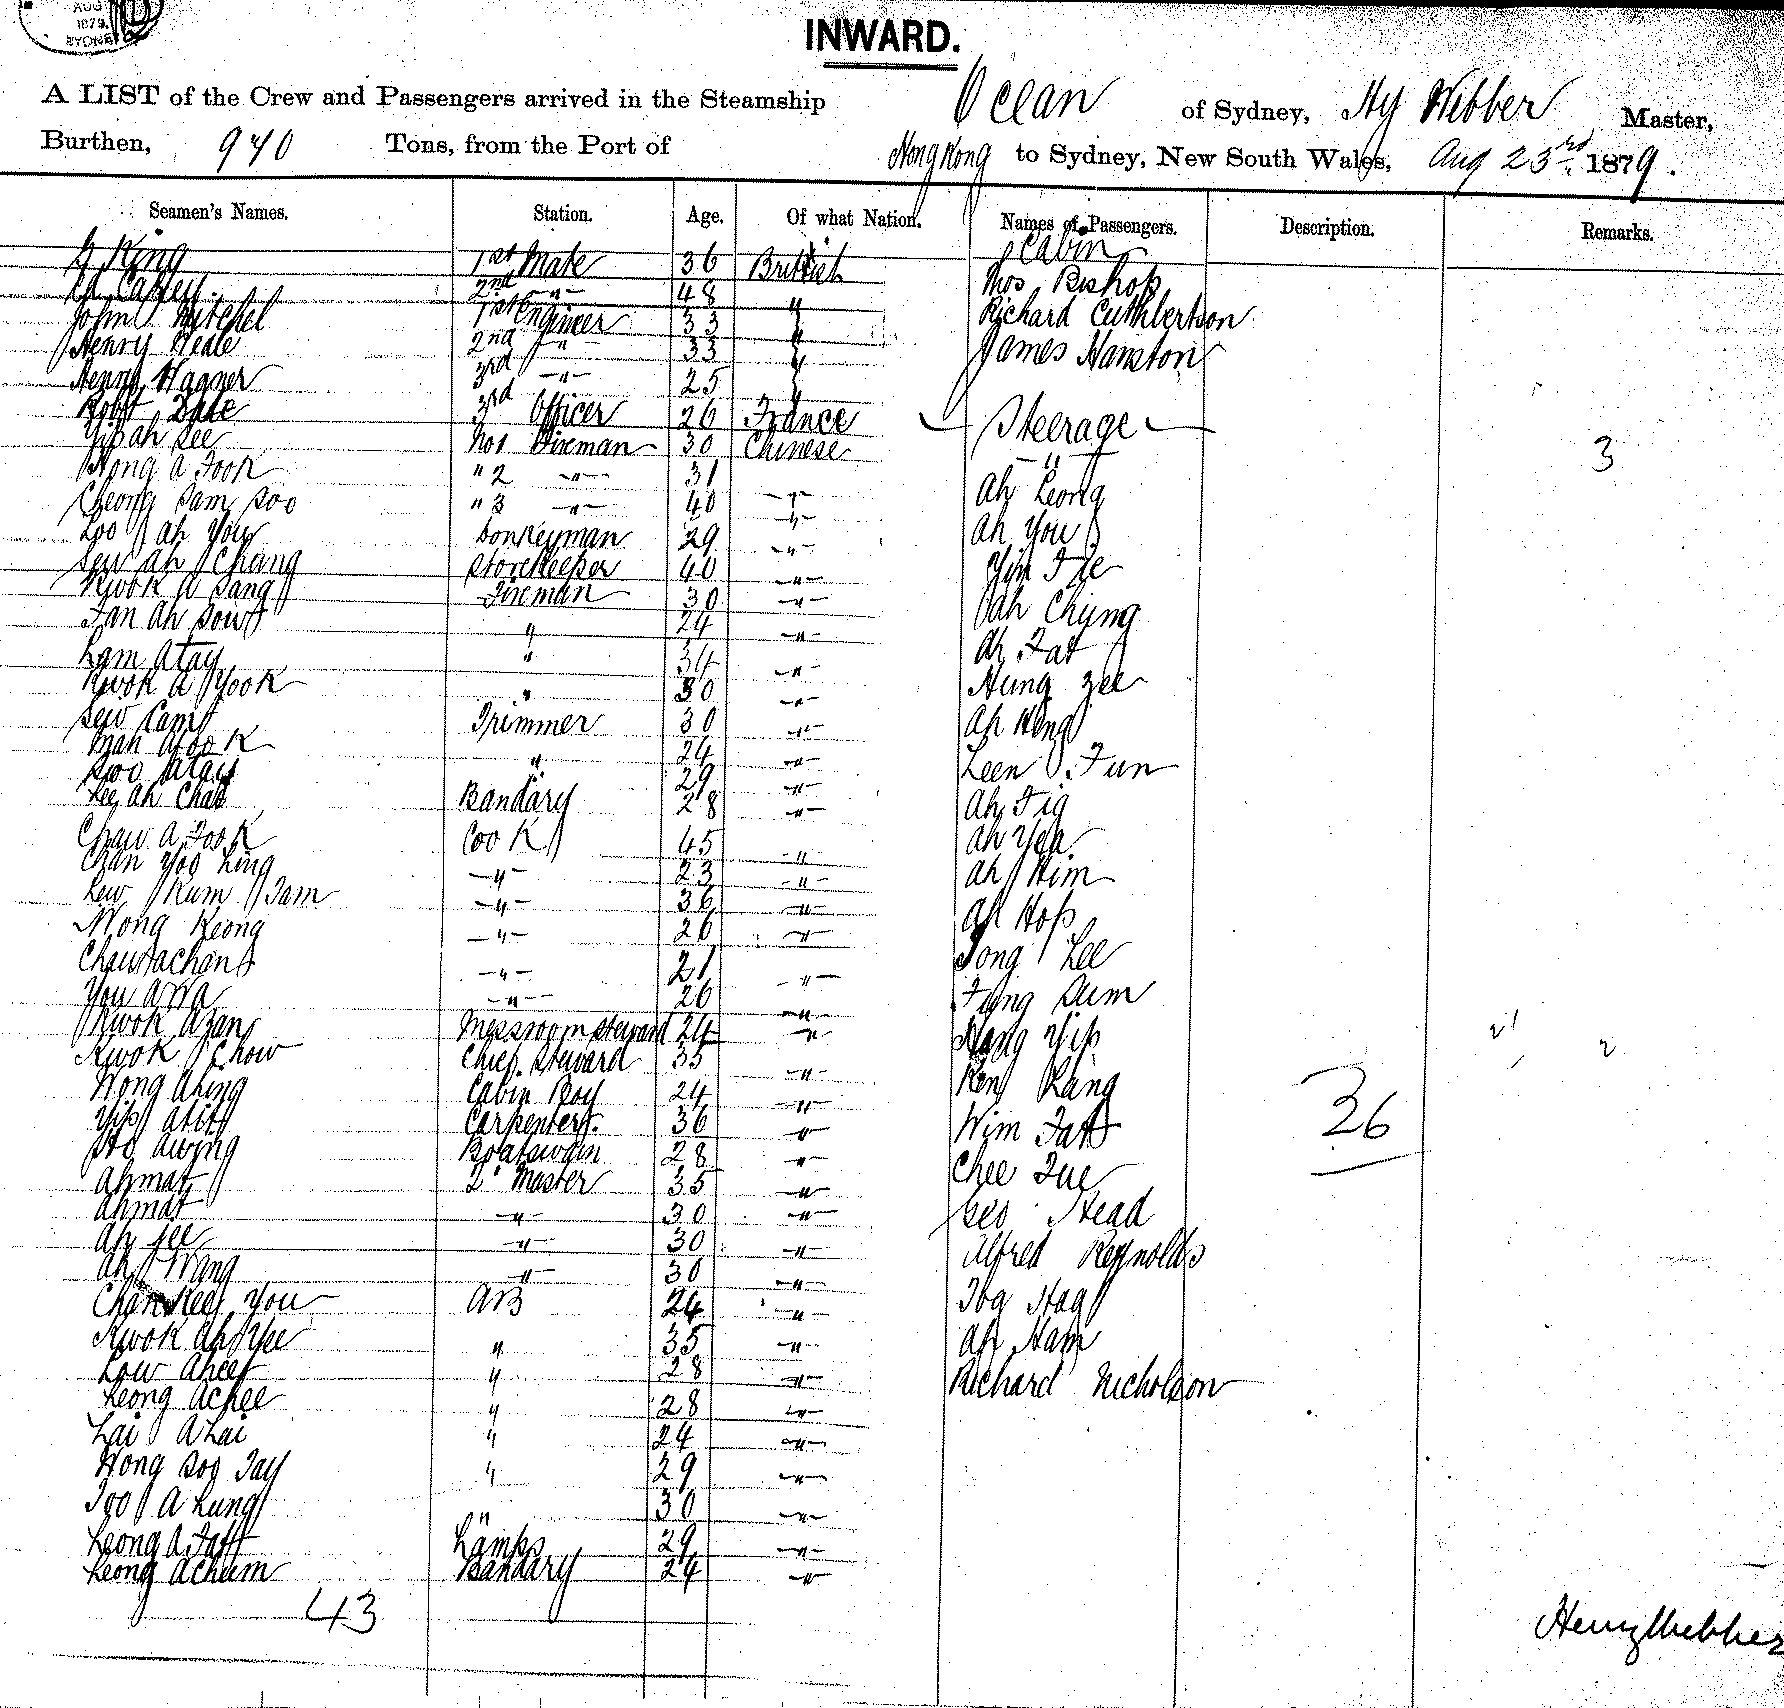 AUG
1879
SYDNEY
INWARD.
A LIST of the Crew and Passengers arrived in the Steamship Ocean of Sydney, Hy Webber Master,
Burthen, 940 Tons, from the Port of Hong Kong to Sydney, New South Wales, Aug 23rd 1879.
Seamen's Names. Station. Age. Of what Nation. Names of Passengers. Description. Remarks.
King 1st Mate 36 British Cabin
2nd " 48 " Thos Bishop
John Mitchel 1st Engineer 33 " Richard Cuthbertson
Henry Neale 2nd " 33 " James Hanston
Henry Wagner 3rd " 25 "
Robt Dale 3rd Officer 26 France Steerage
Yip ah See No 1 Fireman 30 Chinese " 3
Wong a Fook " 2 " 31 " Ah Leong
Cheong Sam Soo " 3 " 40 " Ah You
Loo ah You Donkeyman 29 "
Sew ah Chang Storekeeper 40 "
Kwok a Sang Fireman 30 " Ah Chung
Fan Ah Sow " 24 " Ah Fat
Lam Atay " 34 "
Kwok A Yook " 30 " Hung Lee
Sew Cam Trimmer 30 " Ah Hong
Afook " 24 " Leen Fun
Atay " 29 "
Lee Ah Chat Bandary 28 " Ah Fig
Chaw A Fook Cook 45 " Ah Yen
Chan Yoo Ling " 23 " Ah Him
Lew Kum Tam " 36 " Ah Hop
Wong Keong " 26 " Tong Lee
Chaw Achong " 21 " Fung Sum
You A Wa " 26 "
Kwok Azan Messroom Steward 24 " Yip
Kwok Chow Chief Steward 35 " Kang
Wong Ahing Cabin Boy 24 "
Yip Atit Carpenter 36 " Wim Fat 36
Ho Awing Boatswain 28 "
Ahmat 2 Master 35 " Chee Fue
Ahmat " 30 " Geo Head
Ah See " 30 " Alfred Reynolds
Ah Wang " 30 "
Chan Kee You AB 24 " Hag
Kwok Ah Yee " 35 " Ah Ham
Low Ahee " 28 " Richard Nicholson
Leong Achee " 28 "
Lai A Lai " 24 "
Wong Soo Tay " 29 "
Too A Lung " 30 "
Leong A Fatt Lamps 29 "
Leong Achum Bandary 24 "
43
Henry Webber